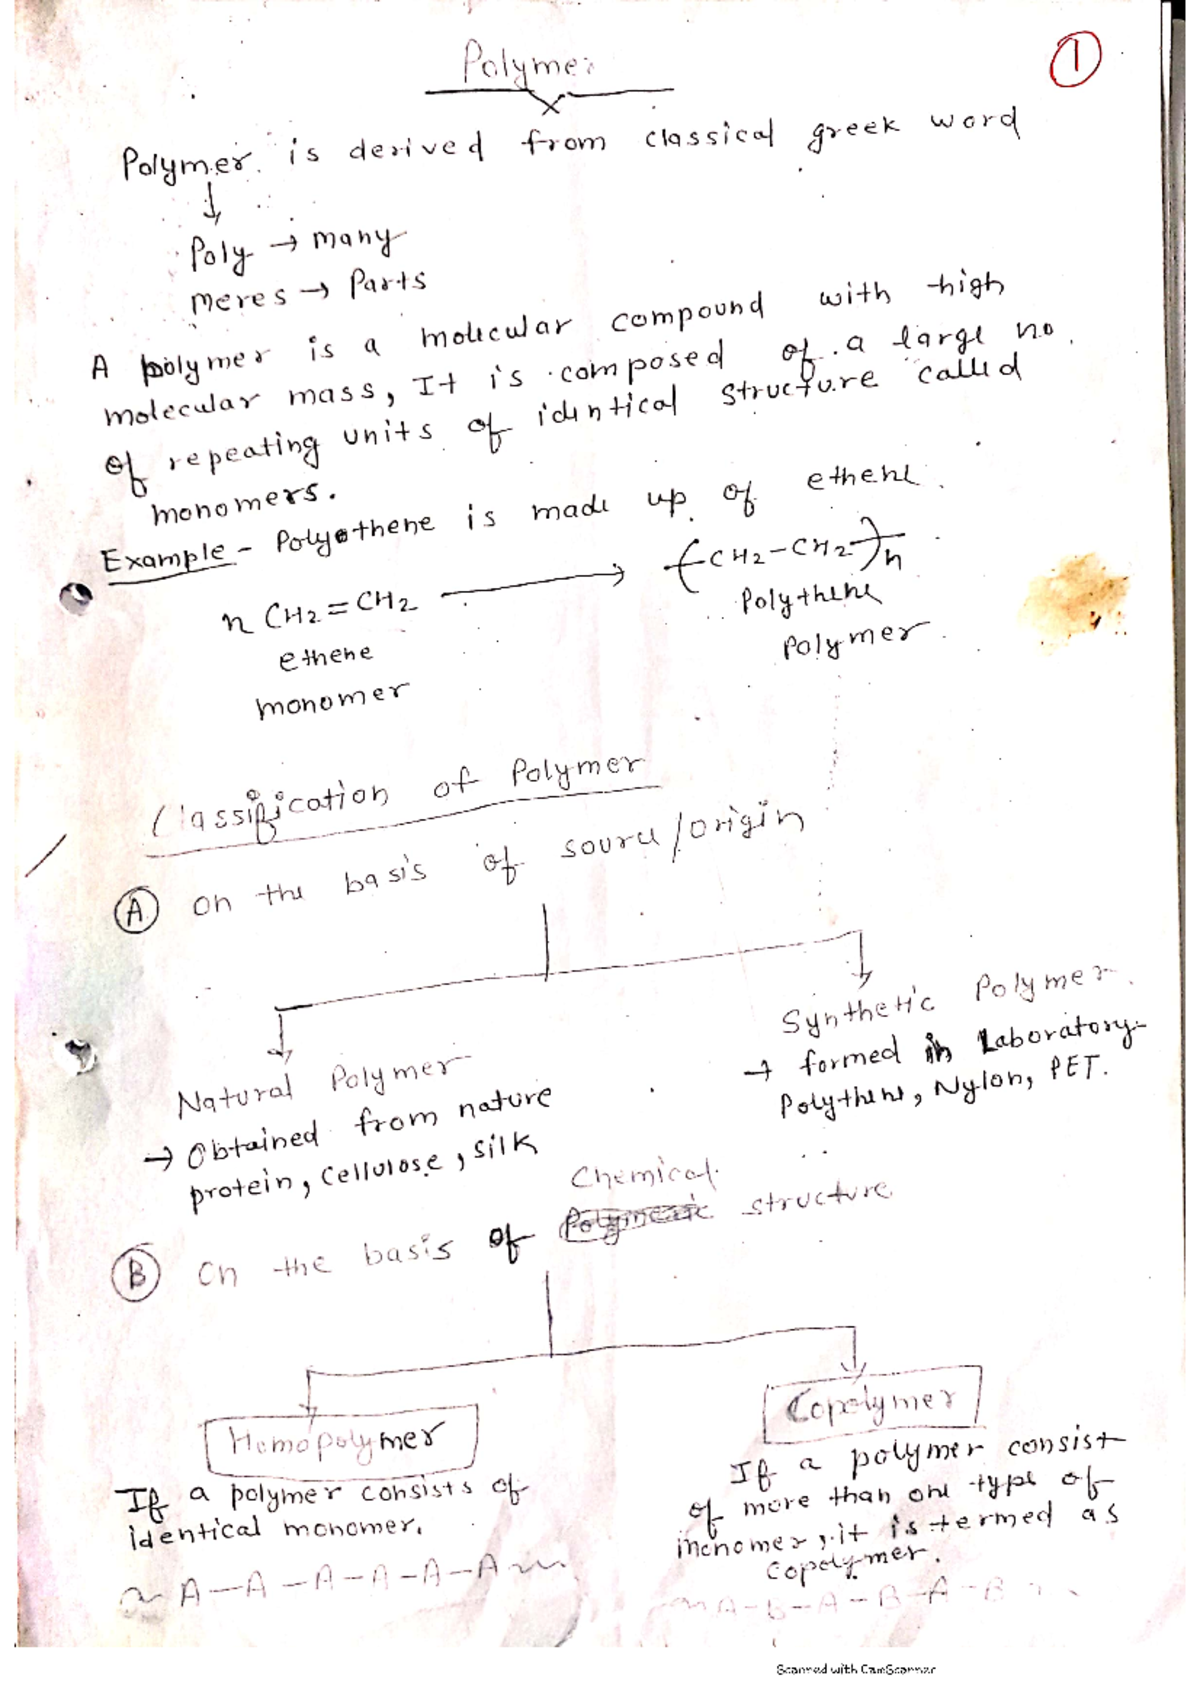 Polymer
1
Polymer is derived from classical greek word
↓
Poly → many
meres → Parts
A polymer is a molecular compound with high
molecular mass, It is composed of a large no.
of repeating units of identical structure called
monomers.
Example - Polyethene is made up of ethene.
n CH2=CH2 ⟶ (CH2-CH2)n
ethene Polythene
monomer Polymer
Classification of Polymer
(A) On the basis of source/origin
Natural Polymer
→ Obtained from nature
protein, Cellulose, silk
Synthetic Polymer
→ formed in Laboratory-
Polythene, Nylon, PET.
Chemical
(B) On the basis of structure
Homopolymer
If a polymer consists of
identical monomer.
~ A-A-A-A-A-A ~
Copolymer
If a polymer consist
of more than one type of
monomer, it is termed as
Copolymer.
~ A-B-A-B-A-B
Scanned with CamScanner